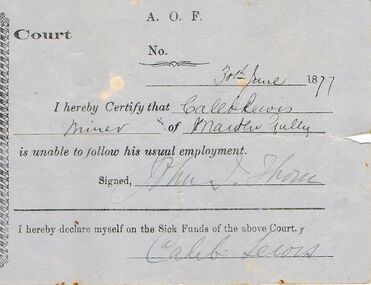 A. O. F.
Court
No.
30th June 1877
I hereby Certify that Caleb Lewis
Miner of Maiden Gully
is unable to follow his usual employment.
Signed, John
I hereby declare myself on the Sick Funds of the above Court,
Caleb Lewis